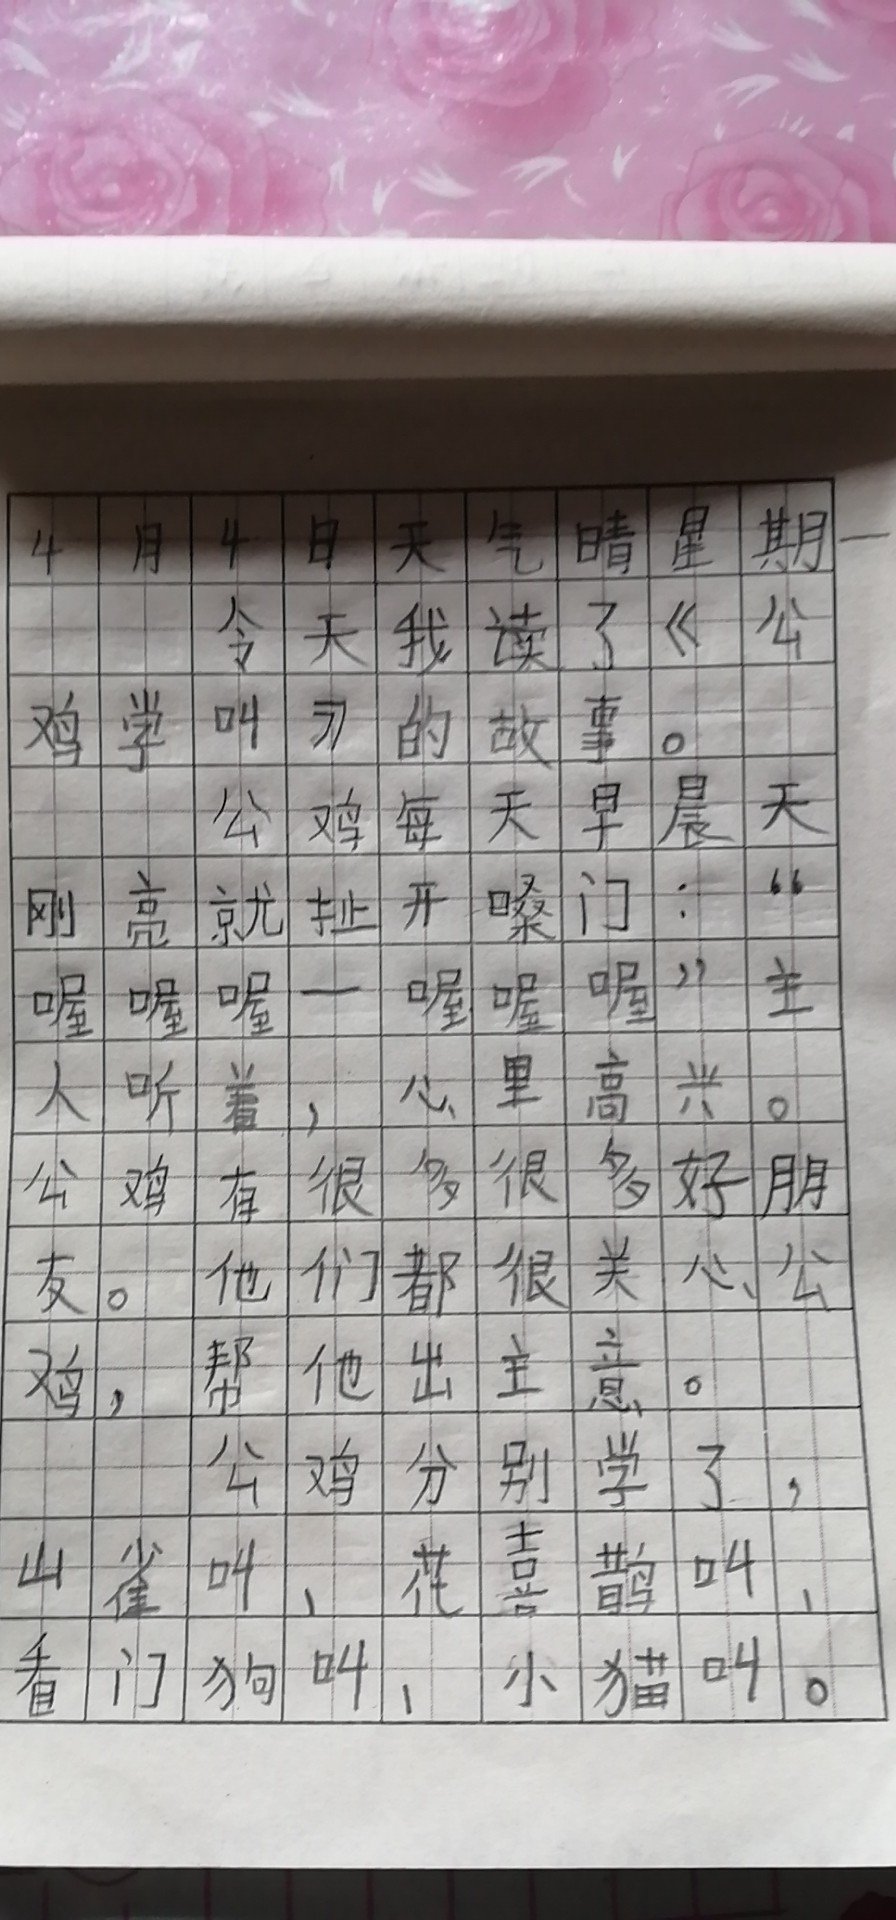 4月4日天气晴星期一
令天我读了《公
鸡学叫》的故事。
公鸡每天早晨天
刚亮就扯开嗓门：“
喔喔喔一喔喔喔”主
人听着，心里高兴。
公鸡有很多很多好朋
友。他们都很关心公
鸡，帮他出主意。
公鸡分别学了，
山雀叫、花喜鹊叫、
看门狗叫、小猫叫。